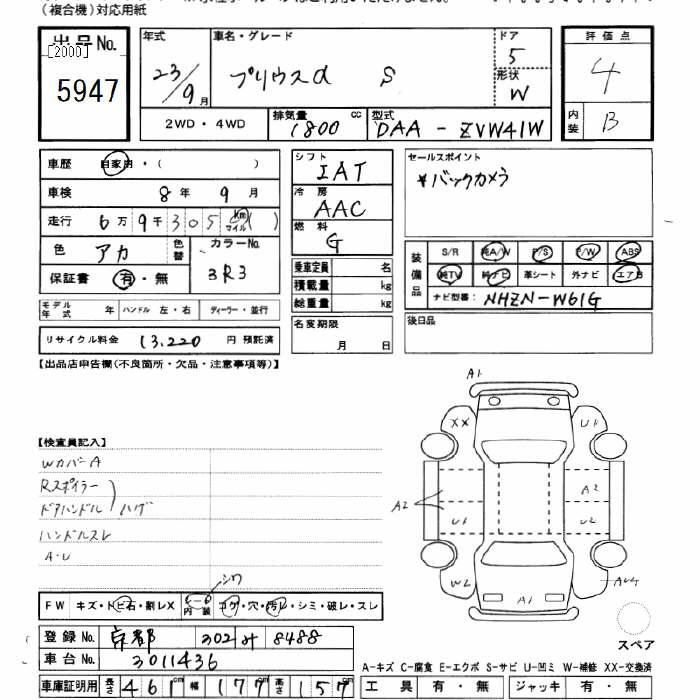 (複合機)対応用紙
出品No.
[2000]
5947
年式 23/9月
車名・グレード プリウスα S
ドア 5
形状 W
評価点 4
内装 B
2WD・4WD
排気量 1800 cc
型式 DAA-ZVW41W
車歴 自家用・( )
車検 8年 9月
走行 6万9千305 Km マイル ( )
色 アカ 色替
カラーNo. 3R3
保証書 有・無
モデル年式 年 ハンドル 左・右 ディーラー・並行
リサイクル料金 13,220 円 預託済
シフト IAT
冷房 AAC
燃料 G
乗車定員 名
積載量 kg
総重量 kg
名変期限 月 日
セールスポイント
*バックカメラ
装備品
S/R 純A/W P/S P/W ABS
純TV 純ナビ 革シート 外ナビ エアB
ナビ型番: NHZN-W61G
後日品
【出品店申告欄(不良箇所・欠品・注意事項等)】
【検査員記入】
WカバーA
Rスポイラー
ドアハンドル ハゲ
ハンドルスレ
A・U
A1
XX U1
A2 A2
U1 U2
W2 A1
シワ
FW キズ・トビ石・割レX 内装 コゲ・穴・汚レ・シミ・破レ・スレ
スペア
登録No. 京都 302 す 8488
車台No. 3011436
A-キズ C-腐食 E-エクボ S-サビ U-凹ミ W-補修 XX-交換済
車庫証明用 長さ 461cm 幅 177cm 高さ 157cm
工具 有・無 ジャッキ 有・無